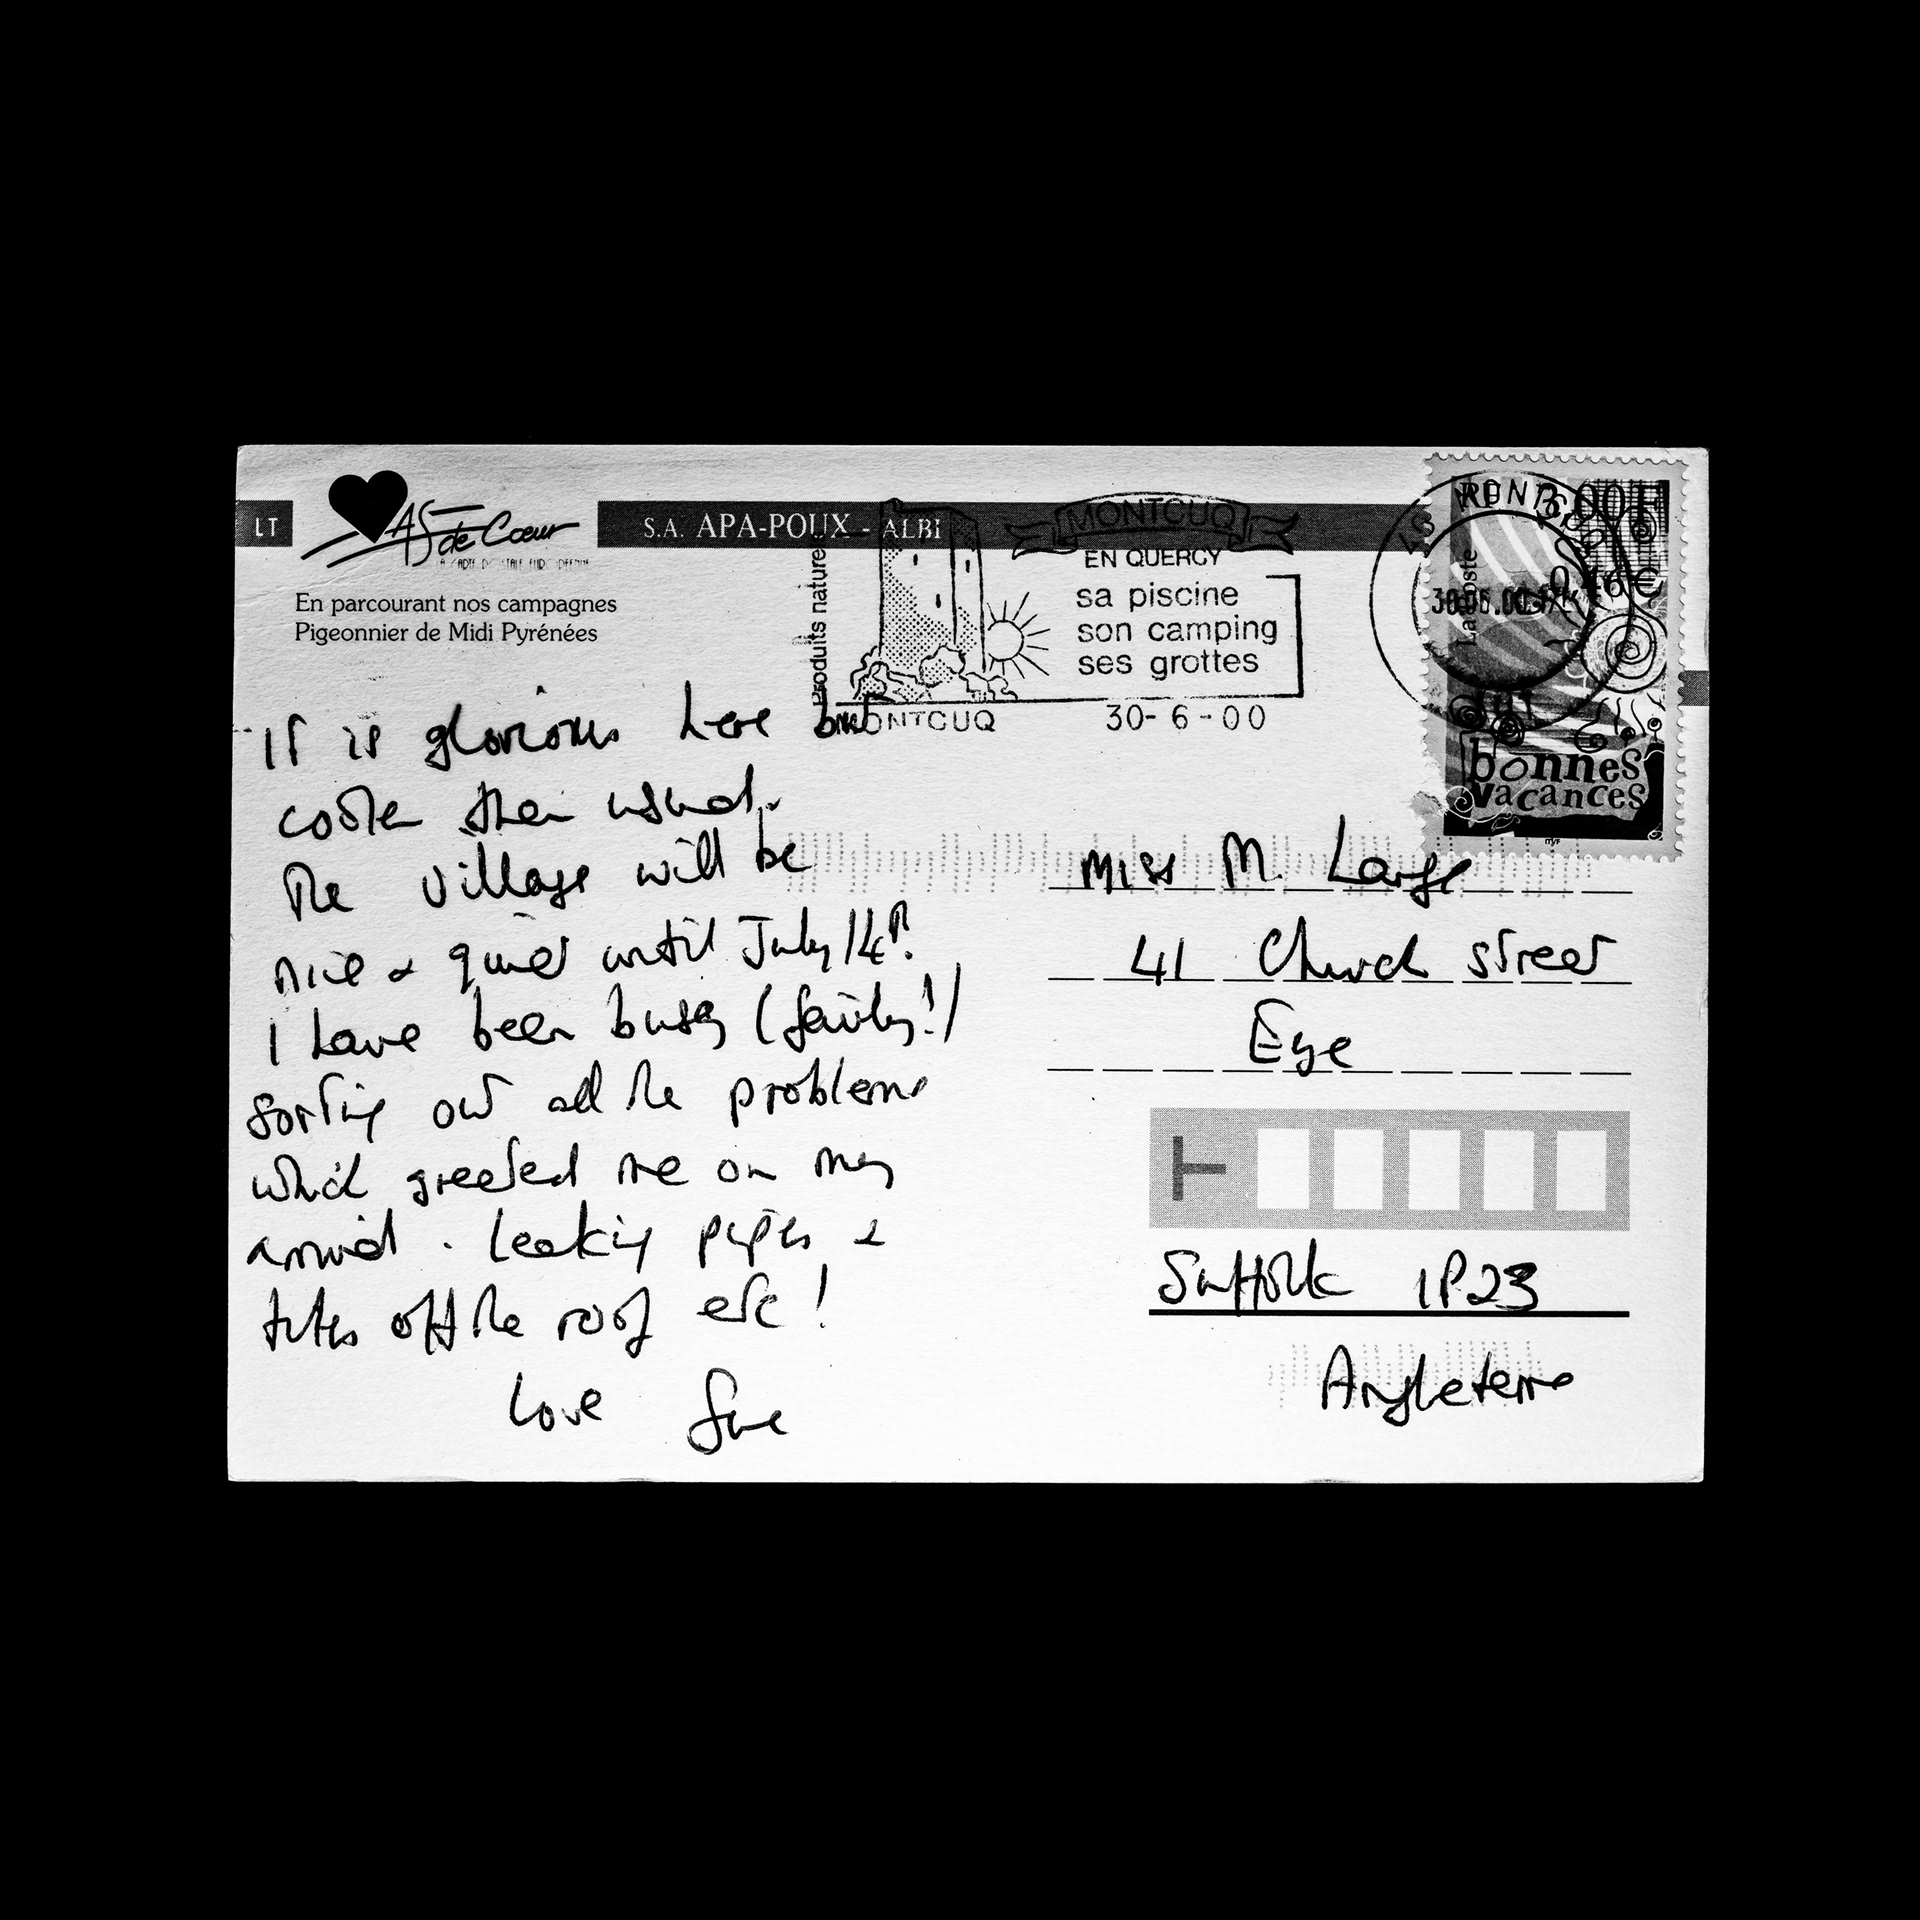 LT
AS de Cœur
LA CARTE POSTALE EUROPÉENNE
S.A. APA-POUX - ALBI
En parcourant nos campagnes
Pigeonnier de Midi Pyrénées
produits naturels
MONTCUQ
EN QUERCY
sa piscine
son camping
ses grottes
MONTCUQ 30-6-00
3,00 F
0,46 €
La Poste
bonnes
vacances
ITVF
It is glorious here but
cooler than usual.
The village will be
nice & quiet until July 14th.
I have been busy (fairly!)
sorting out all the problems
which greeted me on my
arrival. Leaking pipes &
tiles off the roof etc!
Love Sue
Miss M. Large
41 Church Street
Eye
Suffolk IP23
Angleterre